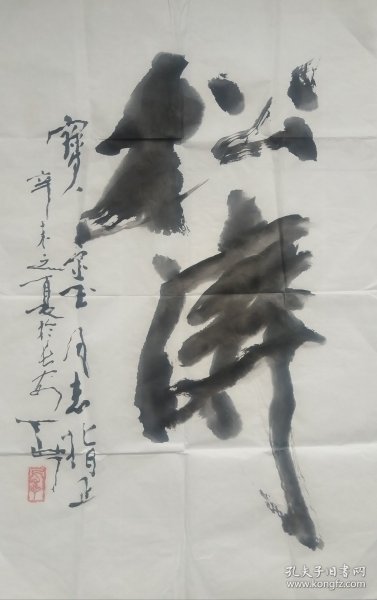 松涛
寶 同志指正
辛未之夏於长安
孔夫子旧书网
www.kongfz.com